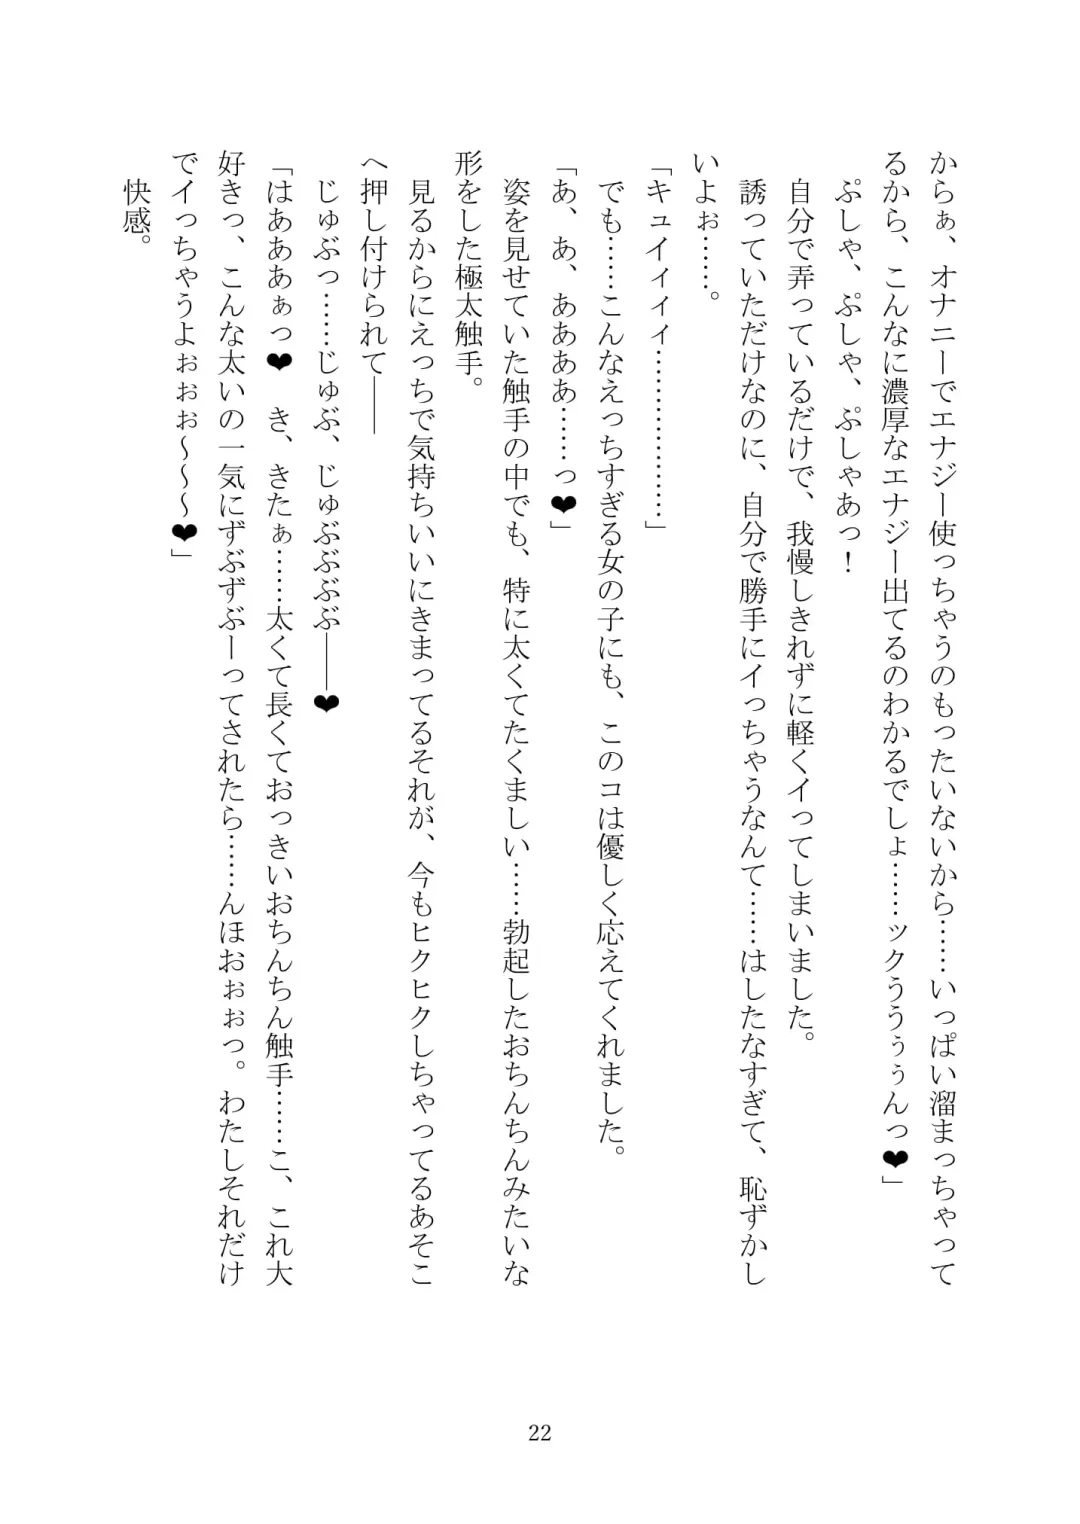 からぁ、オナニーでエナジー使っちゃうのもったいないから……いっぱい溜まっちゃって
るから、こんなに濃厚なエナジー出てるのわかるでしょ……ックううぅぅんっ❤」
ぷしゃ、ぷしゃ、ぷしゃあっ！
自分で弄っているだけで、我慢しきれずに軽くイってしまいました。
誘っていただけなのに、自分で勝手にイっちゃうなんて……はしたなすぎて、恥ずかし
いよぉ……。
「キュイィィィ………………」
でも……こんなえっちすぎる女の子にも、このコは優しく応えてくれました。
「あ、あ、ああああ……っ❤」
姿を見せていた触手の中でも、特に太くてたくましい……勃起したおちんちんみたいな
形をした極太触手。
見るからにえっちで気持ちいいにきまってるそれが、今もヒクヒクしちゃってるあそこ
へ押し付けられて――
じゅぶっ……じゅぶ、じゅぶぶぶぶ――❤
「はあああぁっ❤　き、きたぁ……太くて長くておっきいおちんちん触手……こ、これ大
好きっ、こんな太いの一気にずぶずぶーってされたら……んほおぉぉっ。わたしそれだけ
でイっちゃうよぉぉぉ～～～❤」
快感。
22